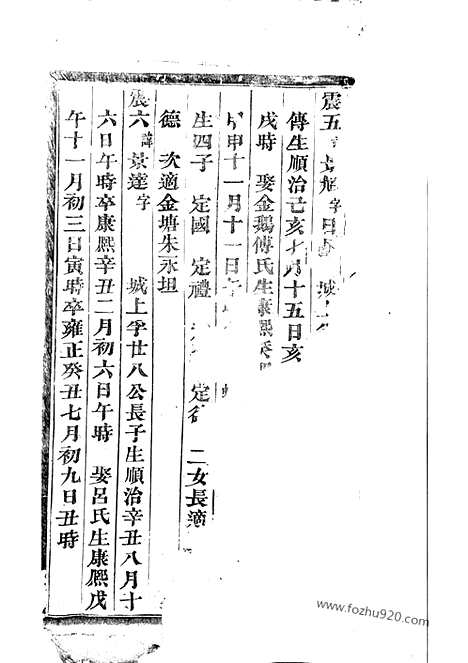 震五 字 城上
傳生順治己亥 月十五日亥
戌時 娶金鵝傅氏生康熙癸
申十一月十一日
生四子 定國 定禮 定 二女長適
德 次適金塘朱永坦
震六諱景達字 城上孚廿八公長子生順治辛丑八月十
六日午時卒康熙辛丑二月初六日午時 娶呂氏生康熙戊
午十一月初三日寅時卒雍正癸丑七月初九日丑時
www.fozhu920.com